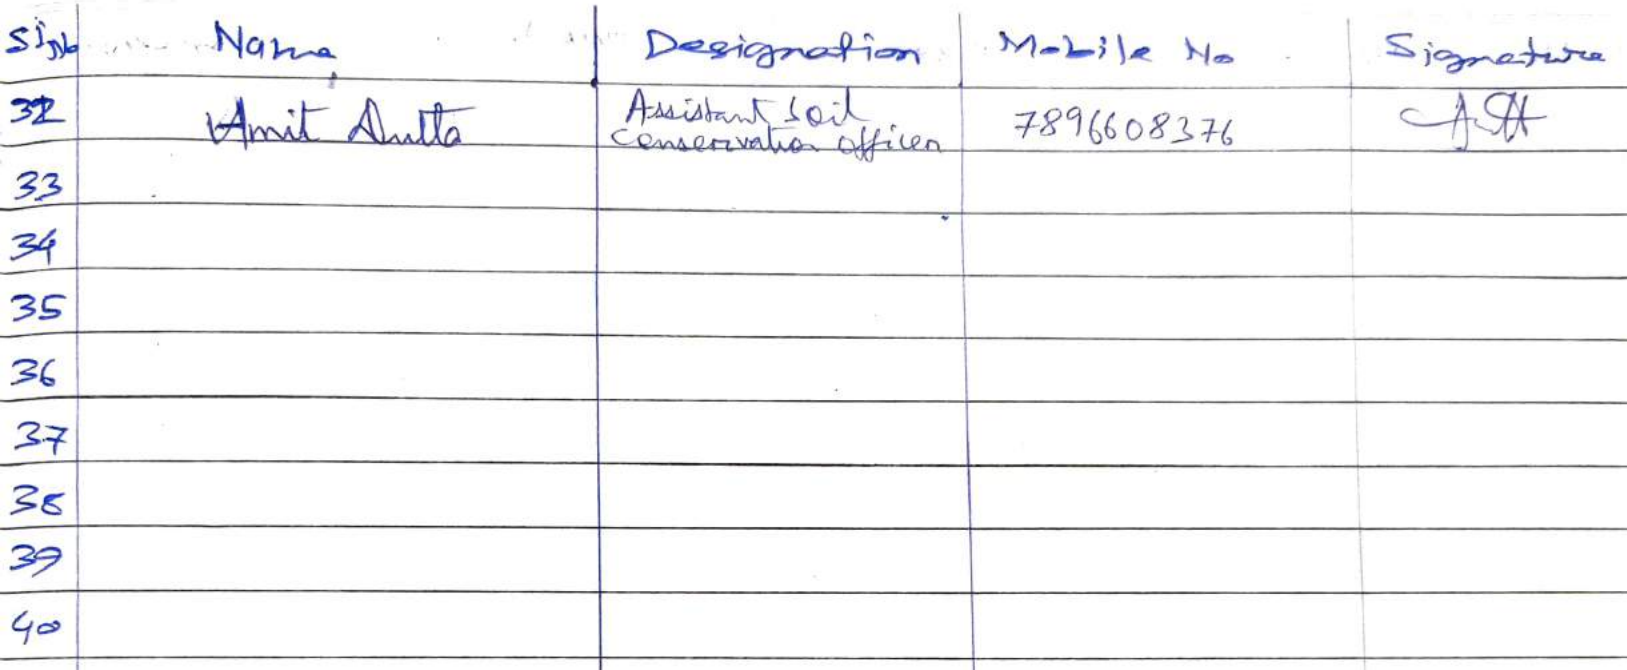 Sl No Name Designation Mobile No Signature
32 Amit Dutta Assistant Soil 7896608376
Conservation officer
33
34
35
36
37
38
39
40